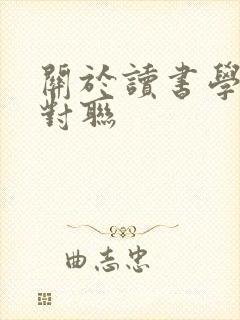 關於讀書學
對聯
曲志忠